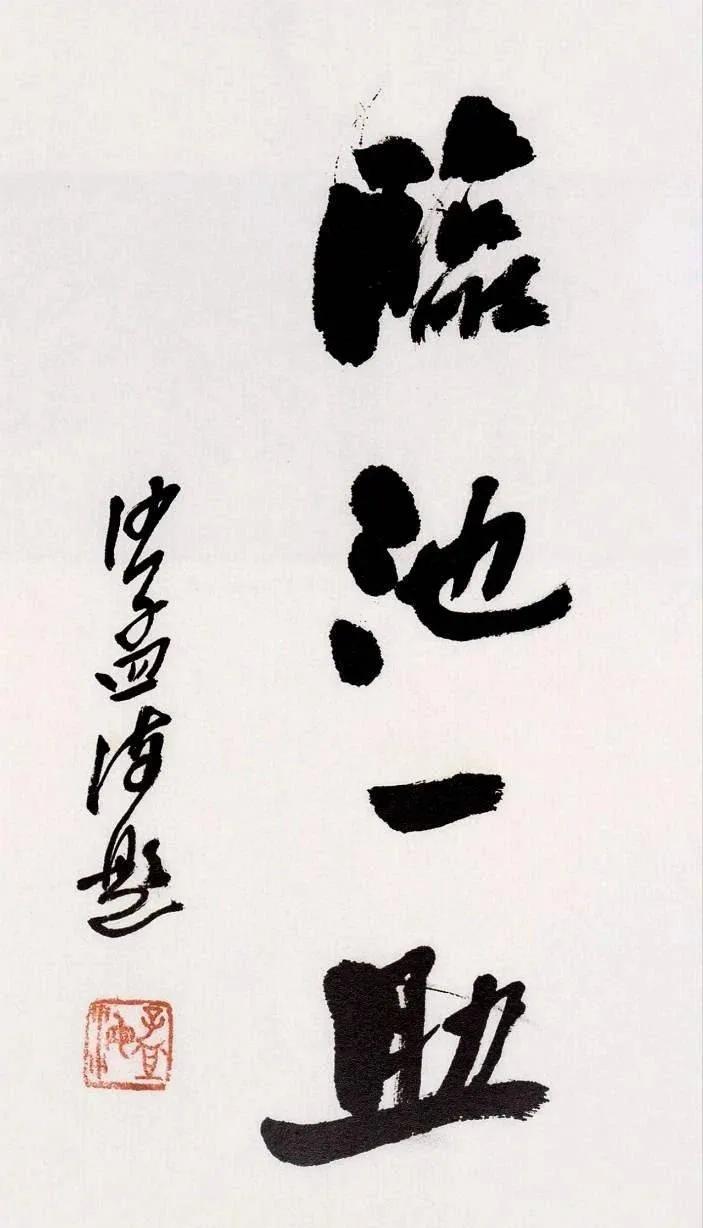 臨池一助
沙孟海題